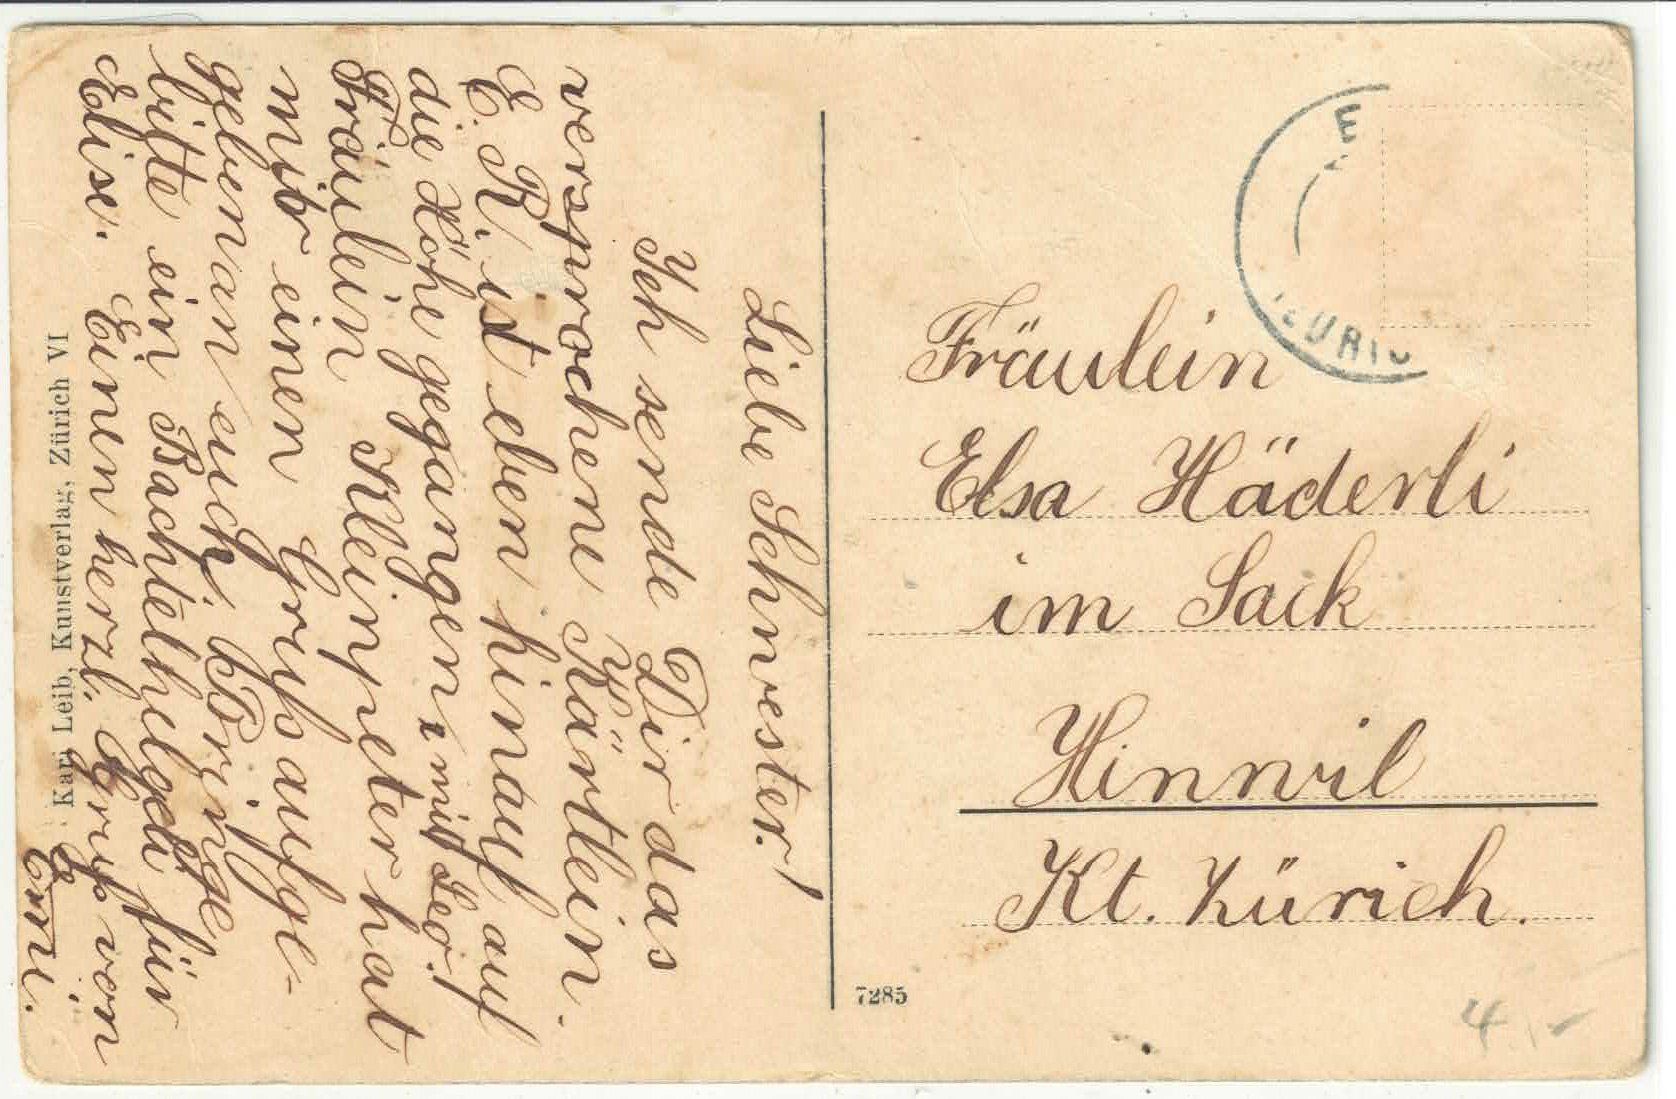 Liebe Schwester!
Ich sende Dir das
versprochene Kärtlein.
E. R. ist eben hinauf auf
die Höhe gegangen, mit Leo!
Fräulein Kleinpeter hat
mir einen Gruß aufge-
geben an euch, bringe
bitte ein Bachtelhugeli für
Elise. Einen herzl. Gruß von
Erni.
Karl Leib, Kunstverlag, Zürich VI
Fräulein
Elsa Häderli
im Sack
Hinwil
Kt. Zürich.
7285
4.-